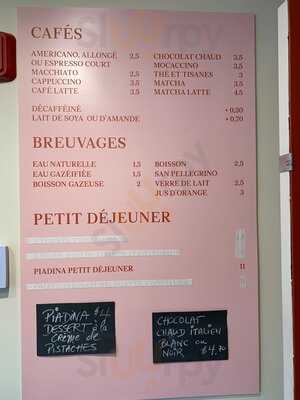 CAFÉS
AMERICANO, ALLONGÉ
OU ESPRESSO COURT 2,5
MACCHIATO 2,5
CAPPUCCINO 3,5
CAFÉ LATTE 3,5
CHOCOLAT CHAUD 3,5
MOCACCINO 3,5
THÉ ET TISANES 3
MATCHA 3,5
MATCHA LATTE 4,5
DÉCAFFÉINÉ +0,50
LAIT DE SOYA OU D'AMANDE +0,70
BREUVAGES
EAU NATURELLE 1,5
EAU GAZÉIFIÉE 1,5
BOISSON GAZEUSE 2
BOISSON 2,5
SAN PELLEGRINO
VERRE DE LAIT 2,5
JUS D'ORANGE 3
PETIT DÉJEUNER
PIADINA PETIT DÉJEUNER 11
PIADINA $4
DESSERT à la
CRÈME de
PISTACHES
CHOCOLAT
CHAUD ITALIEN
BLANC ou
NOIR $4.70